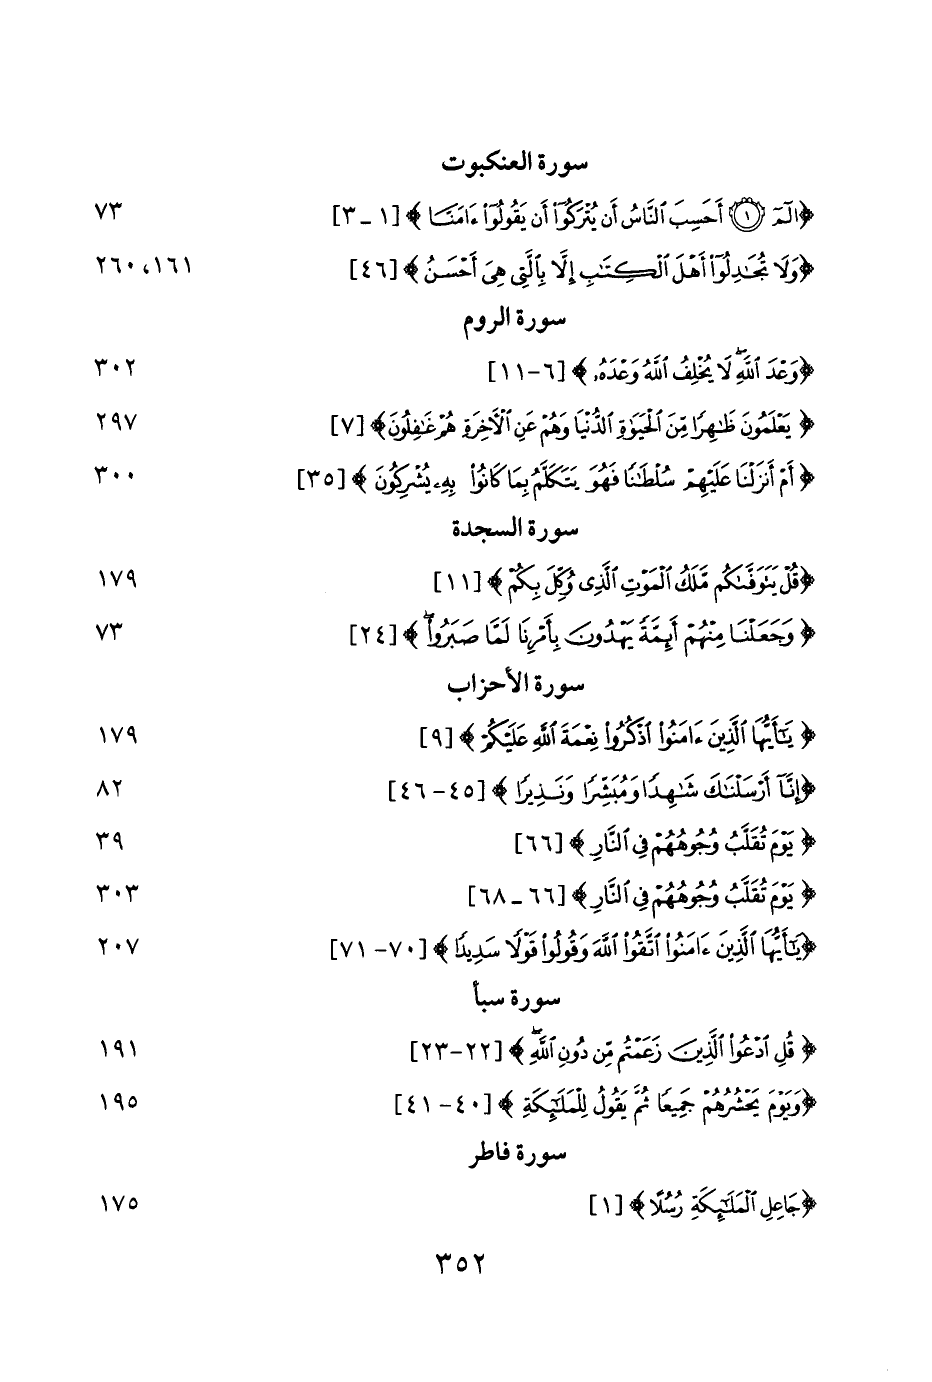 سورة العنكبوت
﴿الٓمٓ ۝١ أَحَسِبَ ٱلنَّاسُ أَن يُتْرَكُوٓا۟ أَن يَقُولُوٓا۟ ءَامَنَّا ﴾ [١ ـ ٣] ٧٣
﴿وَلَا تُجَٰدِلُوٓا۟ أَهْلَ ٱلْكِتَٰبِ إِلَّا بِٱلَّتِى هِىَ أَحْسَنُ ﴾ [٤٦] ١٦١، ٢٦٠
سورة الروم
﴿وَعْدَ ٱللَّهِ ۖ لَا يُخْلِفُ ٱللَّهُ وَعْدَهُۥ ﴾ [٦-١١] ٣٠٢
﴿ يَعْلَمُونَ ظَٰهِرًا مِّنَ ٱلْحَيَوٰةِ ٱلدُّنْيَا وَهُمْ عَنِ ٱلْأَخِرَةِ هُمْ غَٰفِلُونَ﴾ [٧] ٢٩٧
﴿ أَمْ أَنزَلْنَا عَلَيْهِمْ سُلْطَٰنًا فَهُوَ يَتَكَلَّمُ بِمَا كَانُوا۟ بِهِۦ يُشْرِكُونَ ﴾ [٣٥] ٣٠٠
سورة السجدة
﴿قُلْ يَتَوَفَّىٰكُم مَّلَكُ ٱلْمَوْتِ ٱلَّذِى وُكِّلَ بِكُمْ ﴾ [١١] ١٧٩
﴿ وَجَعَلْنَا مِنْهُمْ أَئِمَّةً يَهْدُونَ بِأَمْرِنَا لَمَّا صَبَرُوا۟ ۖ ﴾ [٢٤] ٧٣
سورة الأحزاب
﴿ يَٰٓأَيُّهَا ٱلَّذِينَ ءَامَنُوا۟ ٱذْكُرُوا۟ نِعْمَةَ ٱللَّهِ عَلَيْكُمْ ﴾ [٩] ١٧٩
﴿إِنَّآ أَرْسَلْنَٰكَ شَٰهِدًا وَمُبَشِّرًا وَنَذِيرًا ﴾ [٤٥ - ٤٦] ٨٢
﴿ يَوْمَ تُقَلَّبُ وُجُوهُهُمْ فِى ٱلنَّارِ ﴾ [٦٦] ٣٩
﴿ يَوْمَ تُقَلَّبُ وُجُوهُهُمْ فِى ٱلنَّارِ ﴾ [٦٦ ـ ٦٨] ٣٠٣
﴿يَٰٓأَيُّهَا ٱلَّذِينَ ءَامَنُوا۟ ٱتَّقُوا۟ ٱللَّهَ وَقُولُوا۟ قَوْلًا سَدِيدًا ﴾ [٧٠ - ٧١] ٢٠٧
سورة سبأ
﴿ قُلِ ٱدْعُوا۟ ٱلَّذِينَ زَعَمْتُم مِّن دُونِ ٱللَّهِ ۖ ﴾ [٢٢-٢٣] ١٩١
﴿وَيَوْمَ يَحْشُرُهُمْ جَمِيعًا ثُمَّ يَقُولُ لِلْمَلَٰٓئِكَةِ ﴾ [٤٠ - ٤١] ١٩٥
سورة فاطر
﴿جَاعِلِ ٱلْمَلَٰٓئِكَةِ رُسُلًا ﴾ [١] ١٧٥
٣٥٢